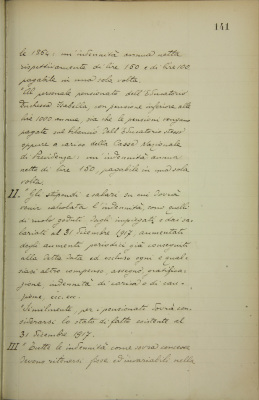 141
le 1864: un'indennità annua netta
rispettivamente di lire 150 e di lire 100
pagabile in una sola volta.
"Al personale pensionato dell'Educatorio
Duchessa Isabella, con pensione inferiore alle
lire 1000 annue, sia che le pensioni vengano
pagate sul bilancio dell'Educatorio stesso
oppure a carico della Cassa Nazionale
di Previdenza: un'indennità annua
netta di lire 150, pagabile in una sola
volta.
II° Gli stipendi e salari su cui dovrà
venir calcolata l'indennità, sono quelli
di ruolo goduti dagli impiegati e dai sa-
lariati al 31 Dicembre 1917, aumentati
degli aumenti periodici già conseguiti
alla detta data ed escluso ogni e qual-
siasi altro compenso, assegno, gratifica-
zione, indennità di carica o di
ecc. ecc.
"Similmente per i pensionati dovrà con-
siderarsi lo stato di fatto esistente al
31 Dicembre 1917.
III° Tutte le indennità come sovra concesse
devono ritenersi fisse ed invariabili nella